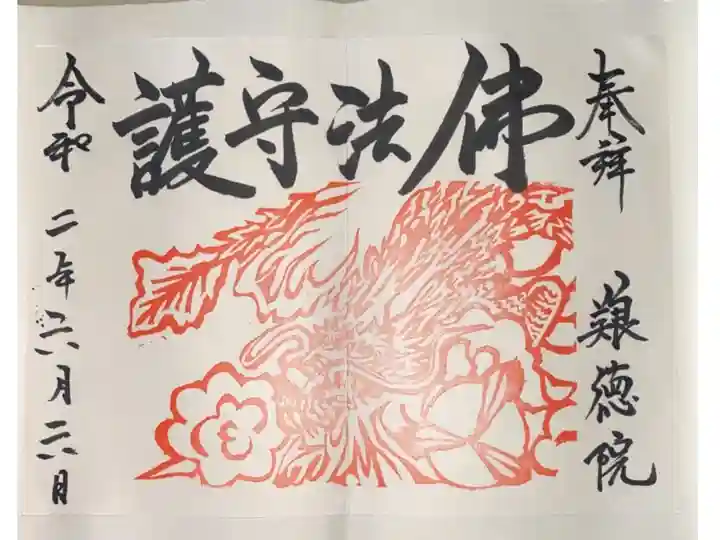 奉拝 艱徳院
佛法守護
令和二年六月六日